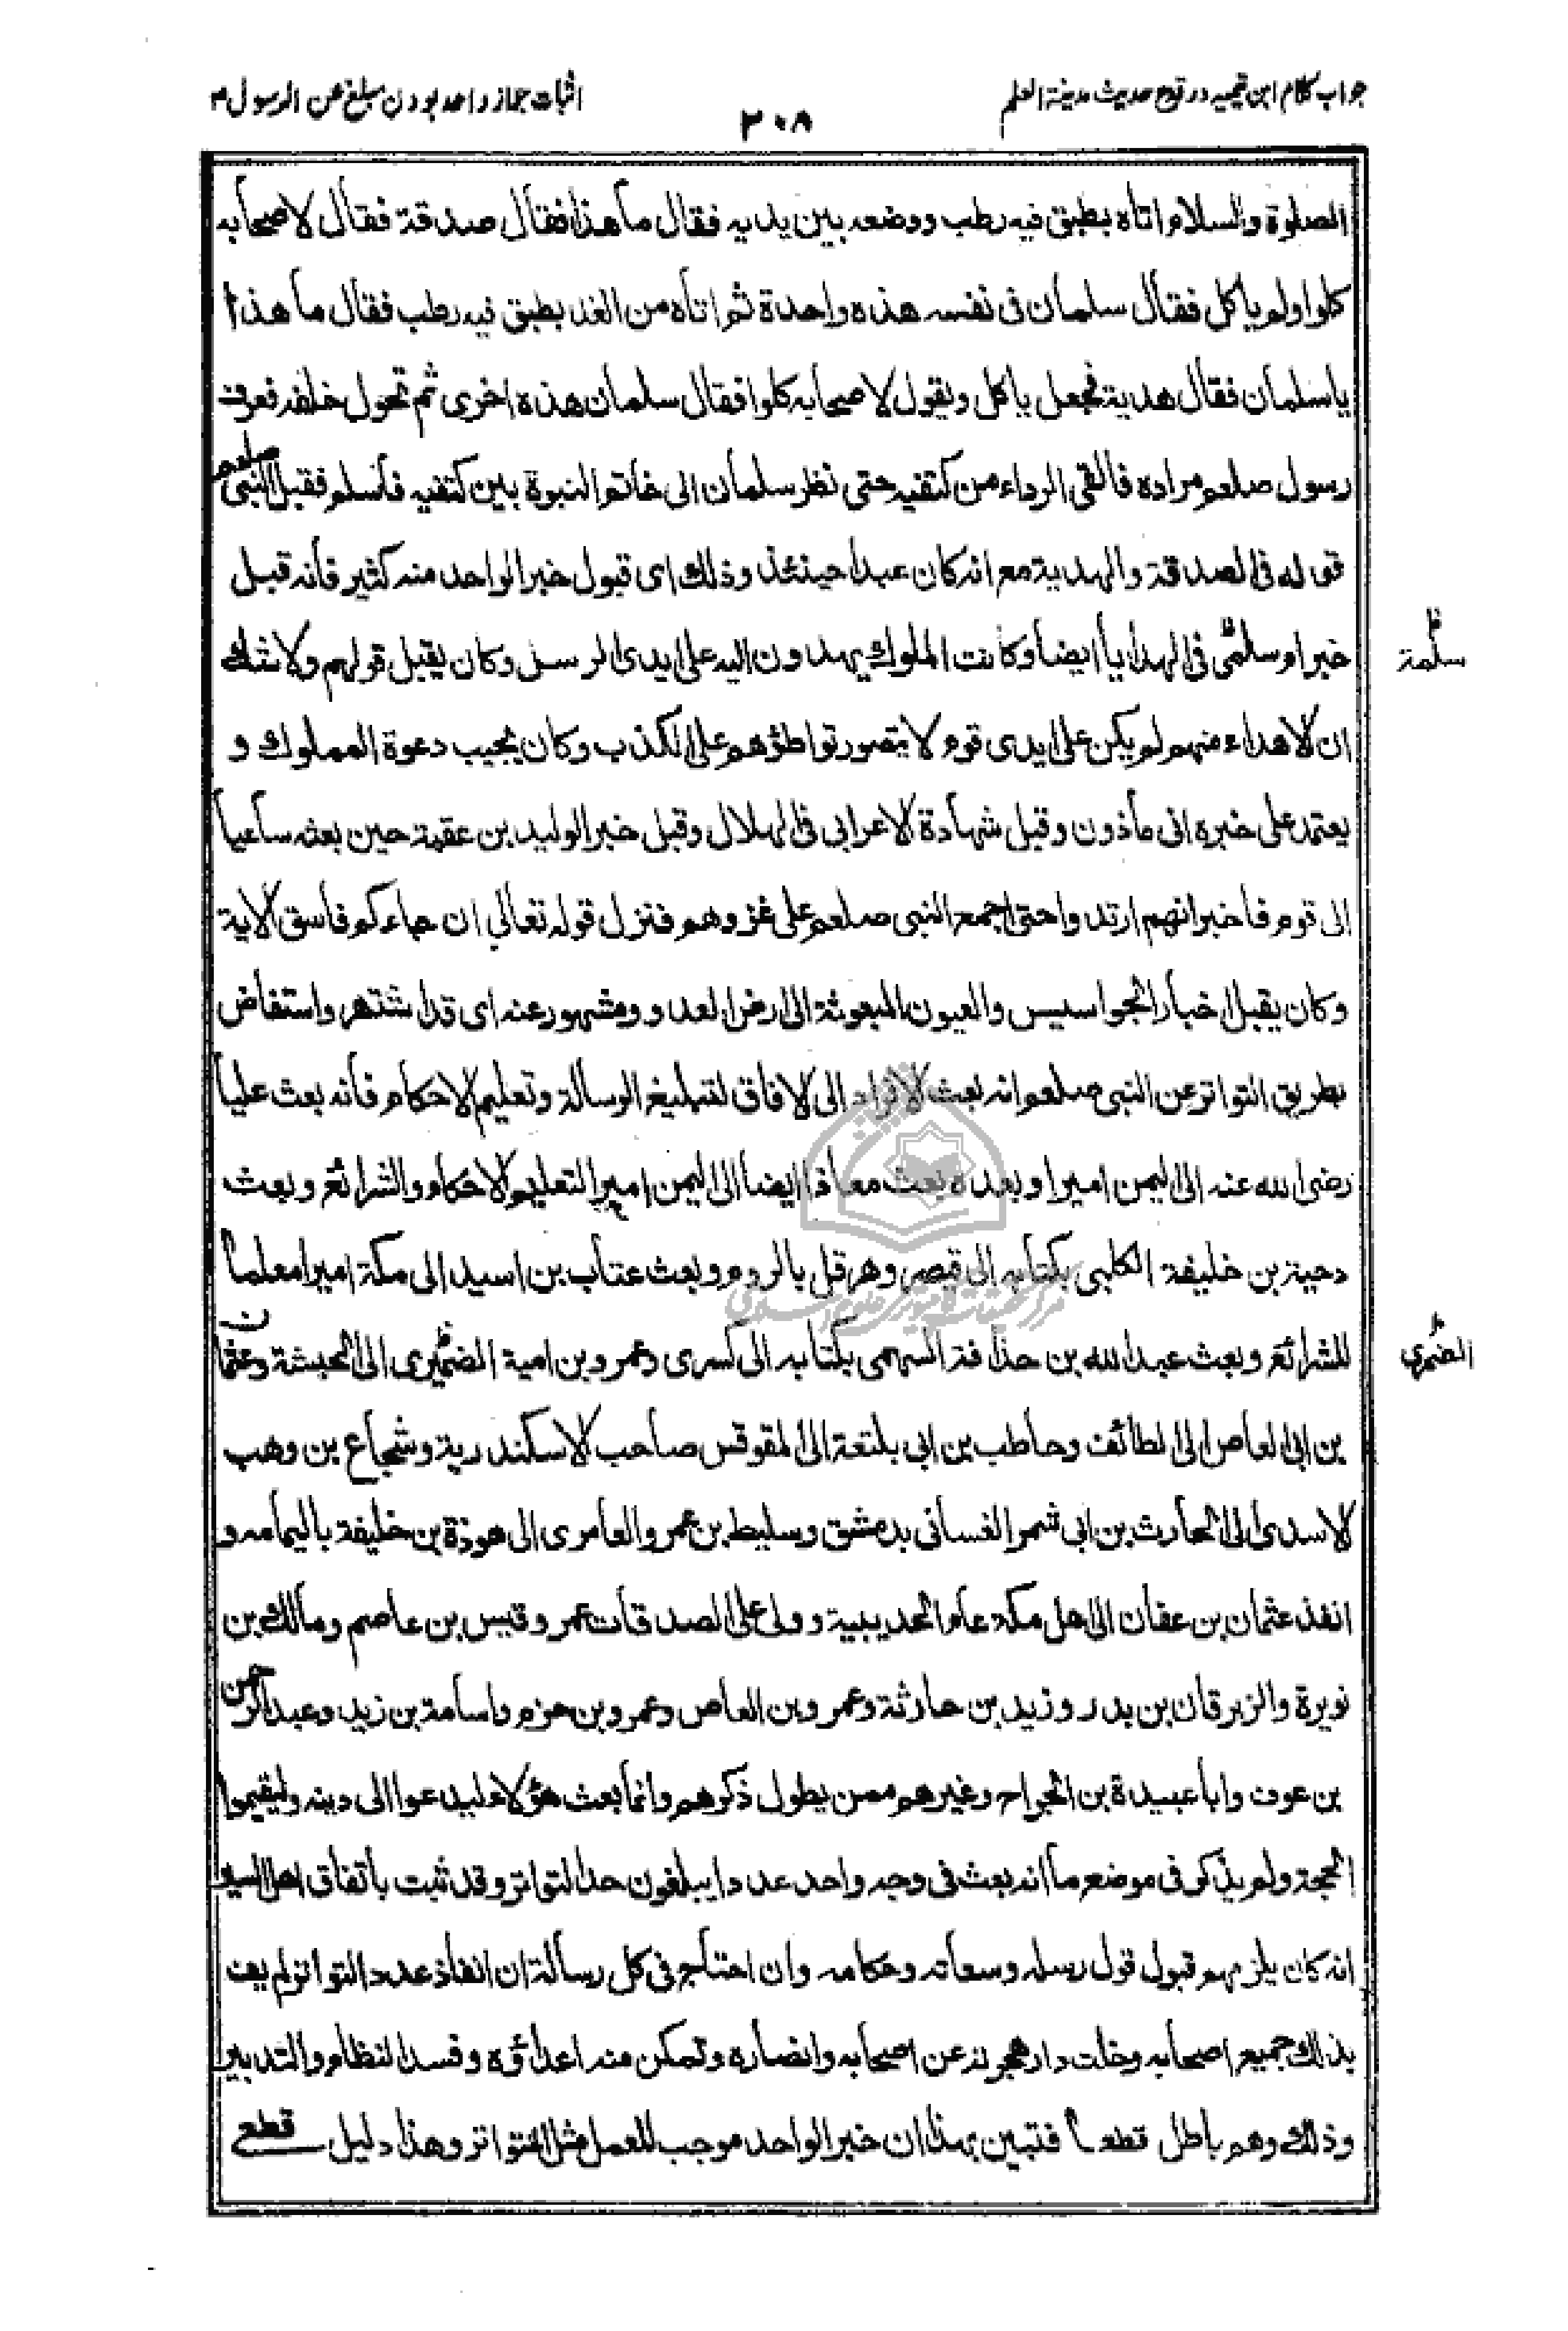 جواب کلام ابن تیمیه در قدح حدیث مدینة العلم
٢٠٨
اثبات جواز واحد بودن مبلغ عن الرسول ص
الصلوة والسلام اتاه بطبق فيه رطب ووضعه بين يديه فقال ما هذا فقال صدقة فقال لاصحابه
كلوا ولم ياكل فقال سلمان فى نفسه هذه واحدة ثم اتاه من الغد بطبق فيه رطب فقال ما هذا
يا سلمان فقال هدية فجعل ياكل ويقول لاصحابه كلوا فقال سلمان هذه اخرى ثم تحول خلفه فعرف
رسول صلعم مراده فالقى الرداء من كتفيه حتى نظر سلمان الى خاتم النبوة بين كتفيه فاسلم فقبل النبى صلعم
قوله فى الصدقة والهدية مع انه كان عبدا حينئذ وذلك اى قبول خبر الواحد منه كثير فانه قبل
خبر ام سلمى فى الهدايا ايضا وكانت الملوك يهدون اليه على ايدى الرسل وكان يقبل قولهم ولا شك
سلمة
ان الاهداء منهم لم يكن على ايدى قوم لا يتصور تواطؤهم على الكذب وكان يجيب دعوة المملوك و
يعتمد على خبره انى مأذون وقبل شهادة الاعرابى فى الهلال وقبل خبر الوليد بن عقبة حين بعثه ساعيا
الى قوم فاخبر انهم ارتدوا حتى اجمع النبى صلعم على غزوهم فنزل قوله تعالى ان جاءكم فاسق الاية
وكان يقبل اخبار الجواسيس والعيون المبعوثة الى ارض العدو ومشهور عنه اى قد اشتهر واستفاض
بطريق التواتر عن النبى صلعم انه بعث الافراد الى الافاق لتبليغ الرسالة وتعليم الاحكام فانه بعث عليا
رضى الله عنه الى اليمن اميرا وبعده بعث معاذا ايضا الى اليمن اميرا لتعليم الاحكام والشرائع وبعث
دحية بن خليفة الكلبى بكتابه الى قيصر وهرقل بالروم وبعث عتاب بن اسيد الى مكة اميرا معلما
للشرائع وبعث عبد الله بن حذافة السهمى بكتابه الى كسرى وعمرو بن امية الضميرى الى الحبشة وعثمان
الضمري
بن ابى العاص الى الطائف وحاطب بن ابى بلتعة الى المقوقس صاحب الاسكندرية وشجاع بن وهب
الاسدى الى الحارث بن ابى شمر الغسانى بدمشق وسليط بن عمرو العامرى الى هوذة بن خليفة باليمامه و
انفذ عثمان بن عفان الى اهل مكة عام الحديبية وولى على الصدقات عمر وقيس بن عاصم ومالك بن
نويرة والزبرقان بن بدر وزيد بن حارثة وعمرو بن العاص وعمرو بن حزم واسامة بن زيد وعبد الرحمن
بن عوف وابا عبيدة بن الجراح وغيرهم ممن يطول ذكرهم وانما بعث هؤلاء ليدعوا الى دينه وليقيموا
الحجة ولم يذكر فى موضع ما انه بعث فى وجه واحد عددا يبلغون حد التواتر وقد ثبت باتفاق اهل السير
انه كان يلزمهم قبول قول رسله وسعاته وحكامه وان احتاج فى كل رسالة ان انفاذ عدد التواتر لم يف
بذلك جميع اصحابه وخلت دار هجرته عن اصحابه وانصاره وتمكن منه اعداؤه وفسد النظام والتدبير
وذلك وهم باطل قطعا فتبين بهذا ان خبر الواحد موجب للعمل مثل التواتر وهذا دليل قطعى